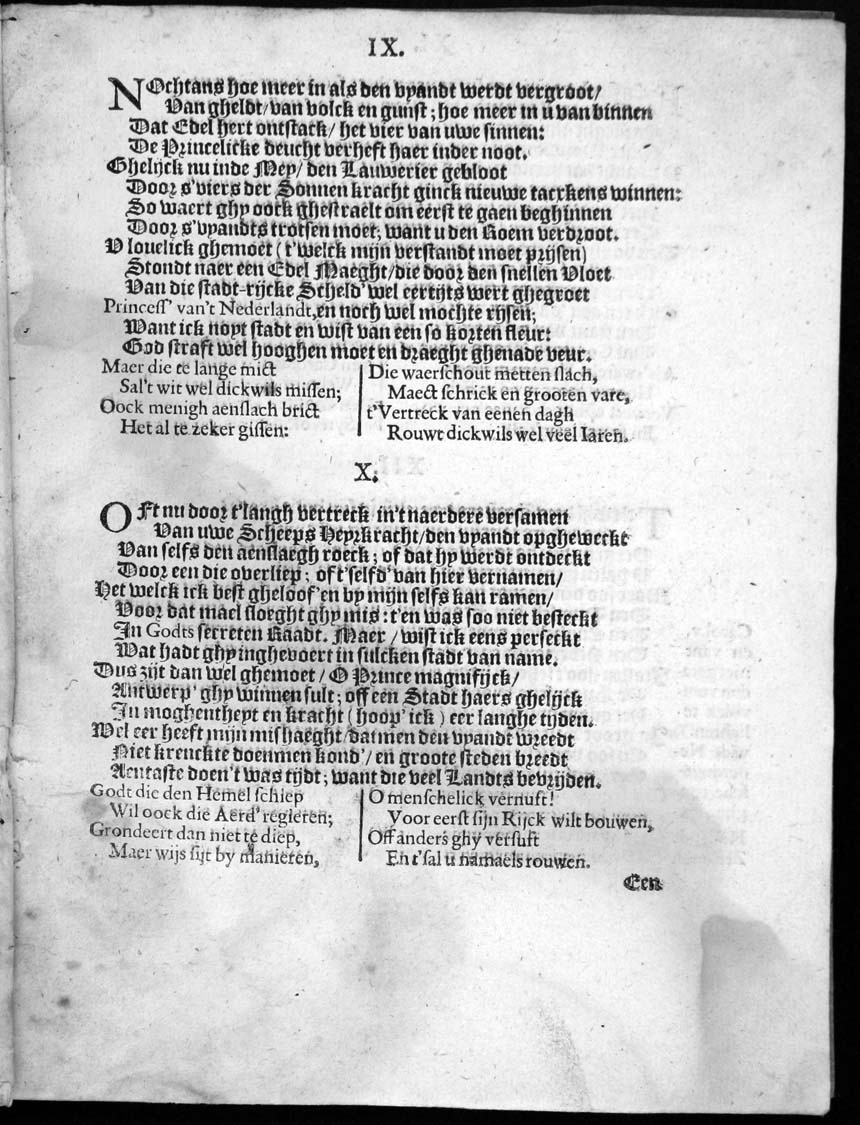 IX.
NOchtans hoe meer in als den vyandt werdt vergroot/
Van gheldt/van volck en gunst; hoe meer in u van binnen
Dat Edel hert ontstack/ het vier van uwe sinnen:
De Princelicke deucht verheft haer inder noot.
Ghelijck nu inde Mey/ den Lauwerier gebloot
Door s'viers der Sonnen kracht ginck nieuwe tacxkens winnen:
So waert ghy oock ghestraelt om eerst te gaen beghinnen
Door s'vyandts trotsen moet; want u den Roem verdroot.
V louelick ghemoet (t'welck mijn verstandt moet prijsen)
Stondt naer een Edel Maeght/die door den snellen Vloet
Van die stadt-rijcke Scheld' wel eertijts wert ghegroet
Princess' van't Nederlandt,en noch wel mochte rijsen;
Want ick noyt stadt en wist van een so korten fleur:
God straft wel hooghen moet en draeght ghenade veur.
Maer die te lange mict
Sal't wit wel dickwils missen;
Oock menigh aenslach brict
Het al te zeker gissen:
Die waerschout metten slach,
Maect schrick en grooten vare,
t'Vertreck van eenen dagh
Rouwt dickwils wel veel Iaren.
X.
OFt nu door t'langh vertreck in't naerdere versamen
Van uwe Scheeps Heyrkracht/den vyandt opgheweckt
Van selfs den aenslaegh roeck; of dat hy werdt ontdeckt
Door een die overliep; oft'selfd' van hier vernamen/
Het welck ick best gheloof'en by mijn selfs kan ramen/
Voor dat mael sloeght ghy mis: t'en was soo niet besteckt
In Godts secreten Raadt. Maer / wist ick eens perfeckt
Wat hadt ghy inghevoert in sulcken stadt van name.
Dus zijt dan wel ghemoet/ O Prince magnifijck/
Antwerp' ghy winnen sult; off een Stadt haers ghelijck
In moghentheyt en kracht (hoop' ick) eer langhe tijden.
Wel eer heeft mijn mishaeght/datmen den vyandt wreedt
Niet krenckte doenmen kond'/ en groote steden breedt
Aentaste doen't was tijdt; want die veel Landts bevrijden.
Godt die den Hemel schiep
Wil oock die Aerd' regieren;
Grondeert dan niet te diep,
Maer wijs sijt by manieren,
O menschelick vernuft!
Voor eerst sijn Rijck wilt bouwen,
Off anders ghy versuft
En t'sal u namaels rouwen.
Een